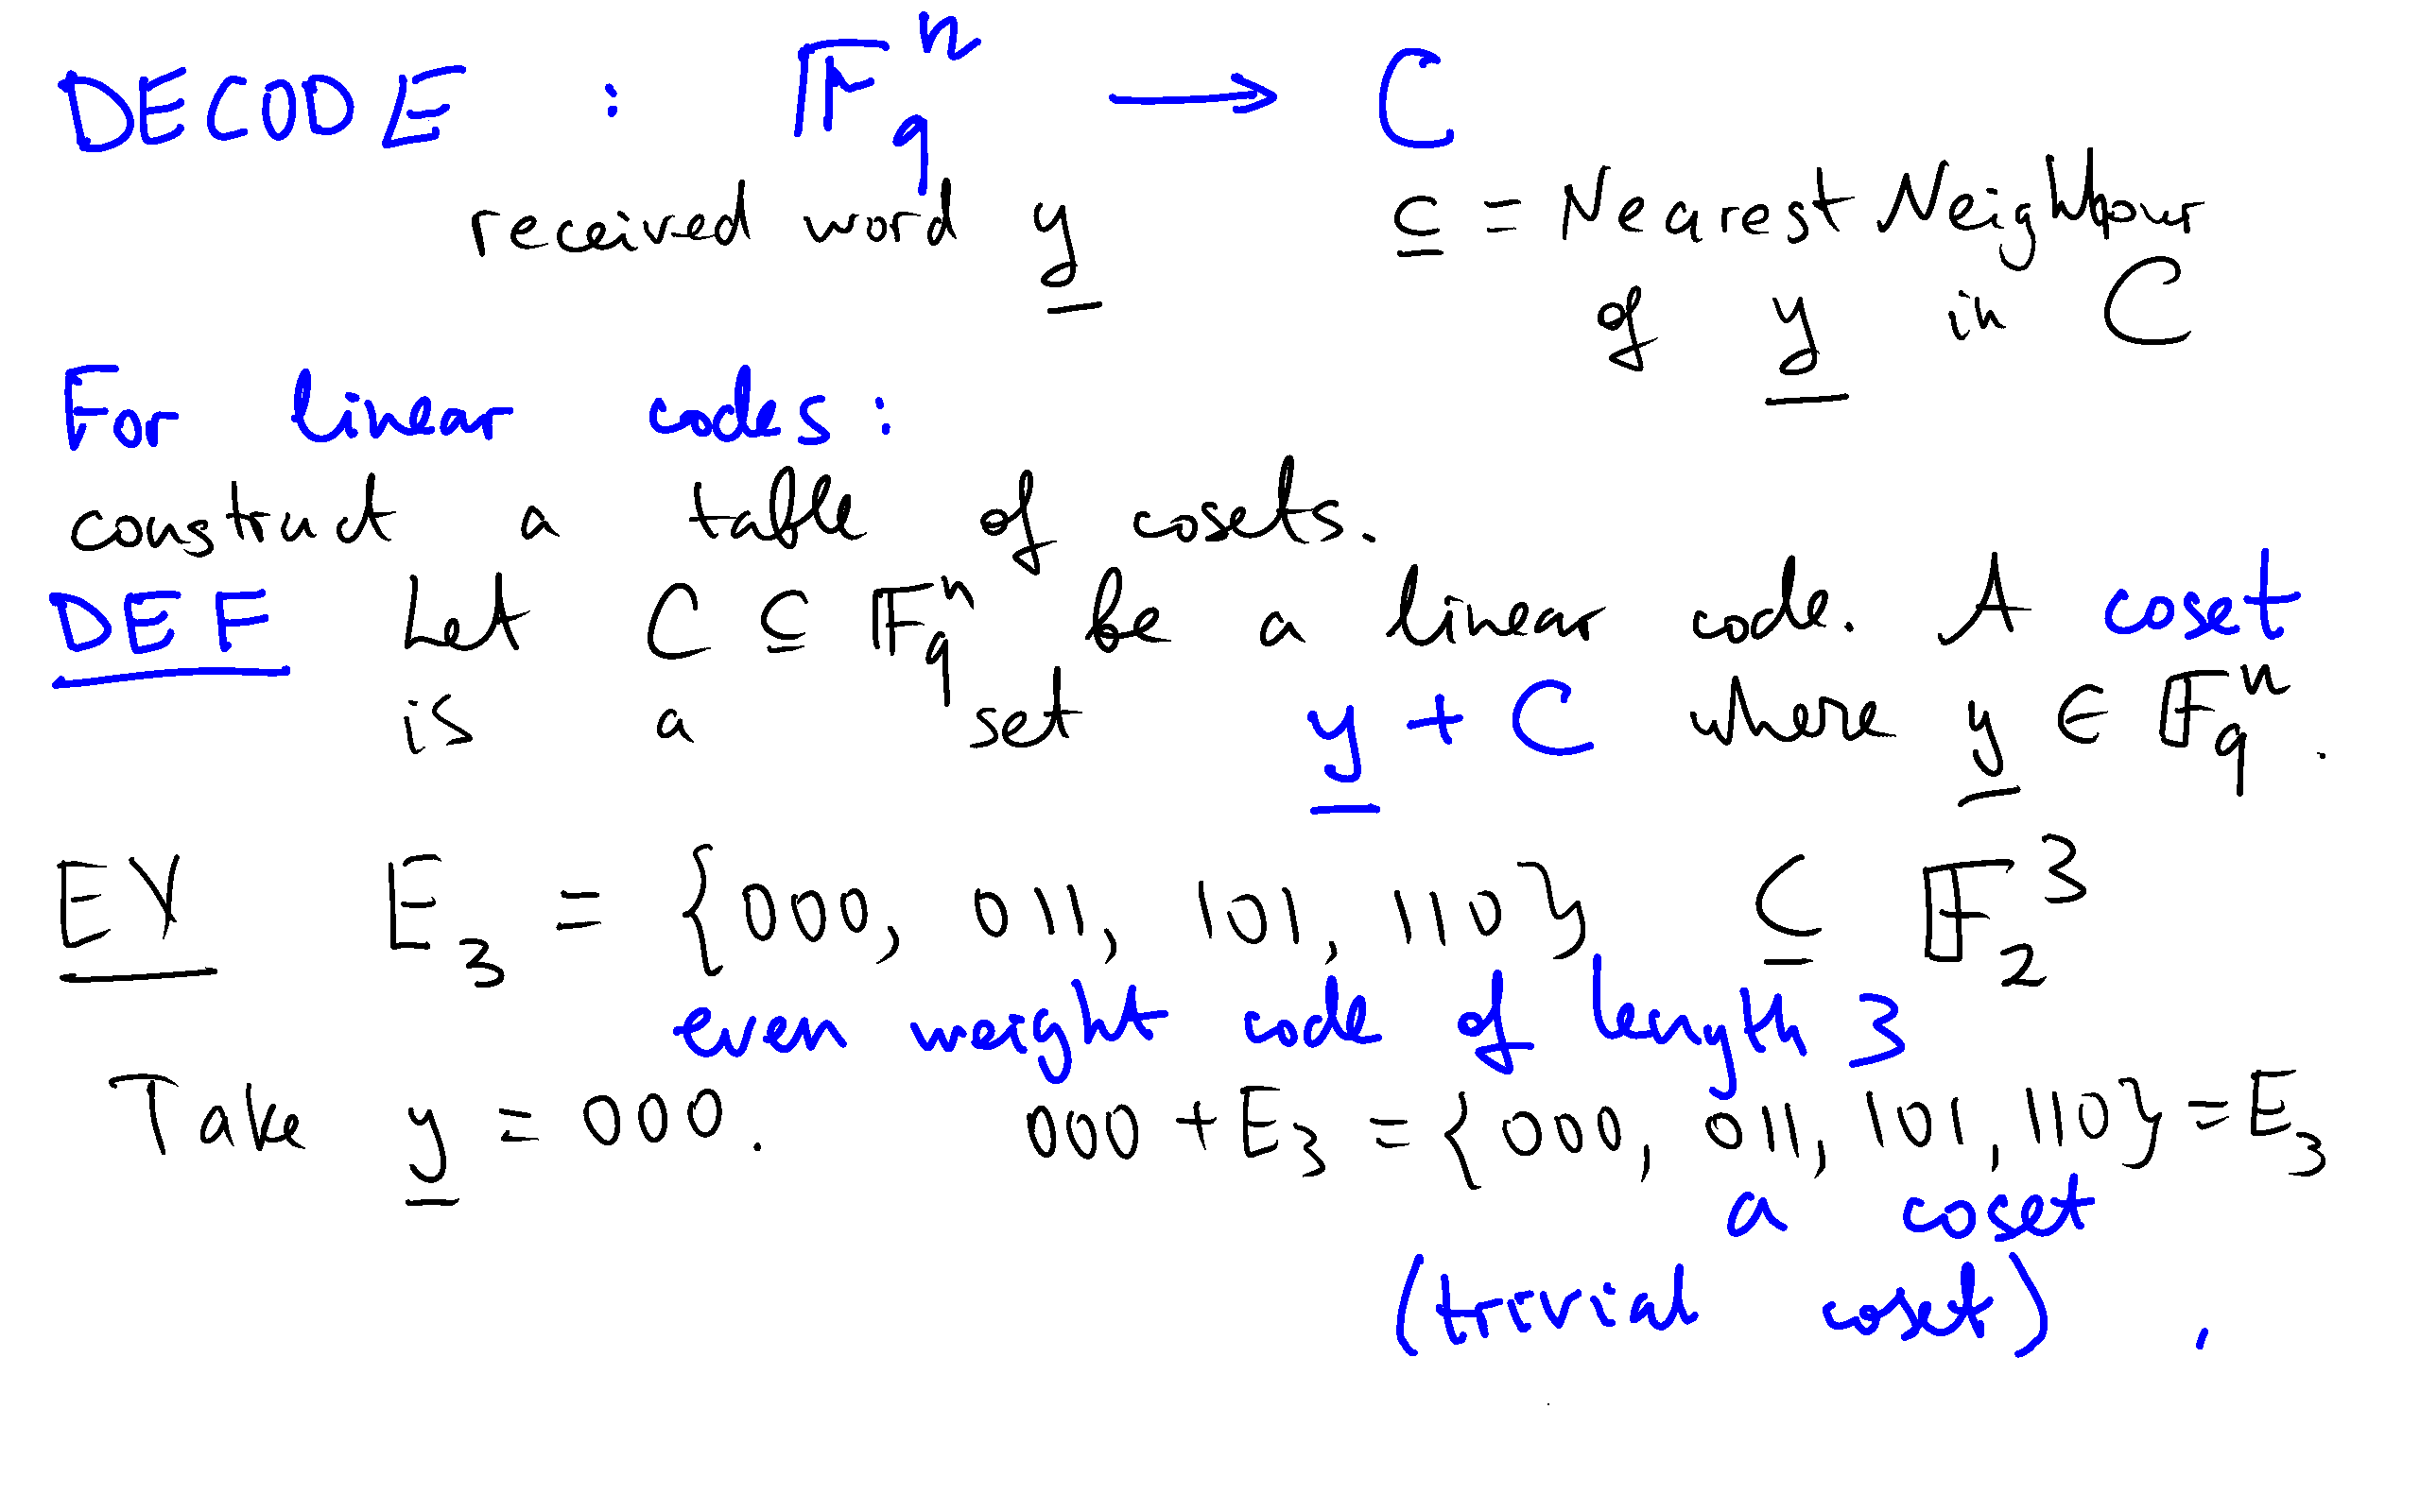 DECODE : 𝔽_q^n ⟶ C
received word y̲ c̲ = Nearest Neighbour
of y̲ in C
For linear codes:
construct a table of cosets.
DEF Let C ⊆ 𝔽_q^n be a linear code. A coset
is a set y̲ + C where y̲ ∈ 𝔽_q^n.
EX E_3 = {000, 011, 101, 110} ⊆ 𝔽_2^3
even weight code of length 3
Take y̲ = 000. 000 + E_3 = {000, 011, 101, 110} = E_3
a coset
(trivial coset) .